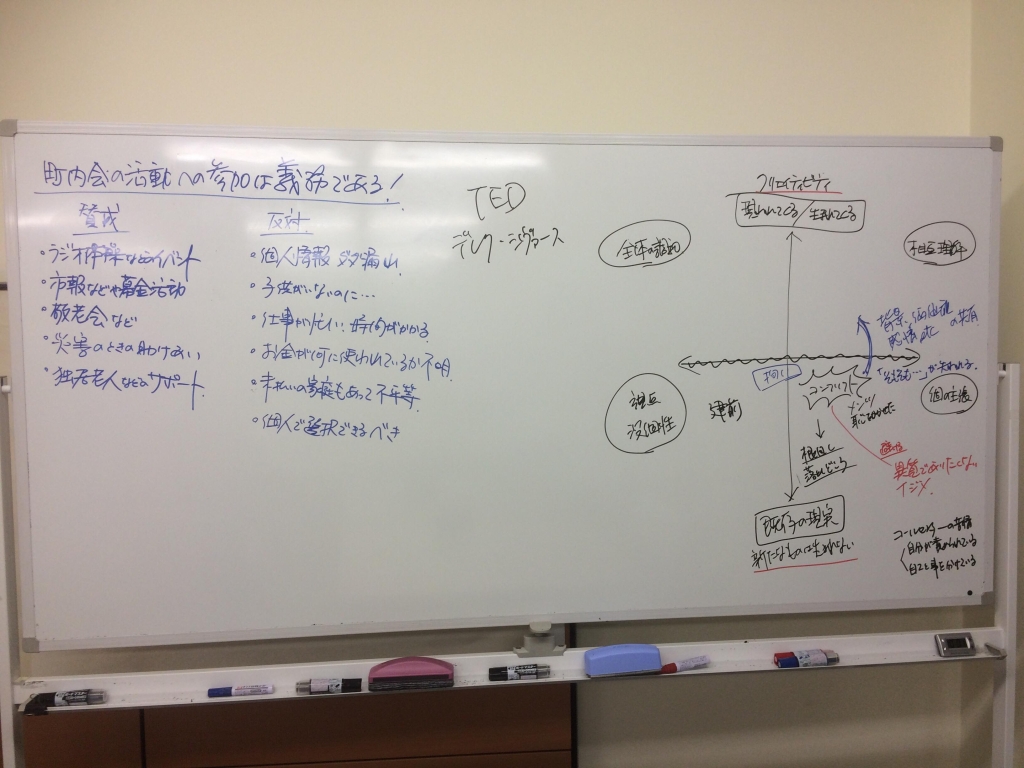 町内会の活動への参加は義務である!
賛成
・ラジオ体操などのイベント
・市報などや募金活動
・敬老会など
・災害のときの助けあい
・独居老人などのサポート
反対
・個人情報が漏れる
・子供がいないのに…
・仕事が忙しい…時間がかかる
・お金が何に使われているか不明
・未払いの家庭もあって不平等
・個人で選択できるべき
TED
デレク・シヴァース
クリエイティビティ
現われてくる/生まれてくる
全体の
相互理解
背景、価値観
感情 etc の共有
が失われる。
コンフリクト
メンツ
恥をかかせた
個の主張
建前
没個性
根回し
落としどころ
異質でありたくない
イジメ
既存の現実
新たなものは生まれない
コールセンターの苦情
自分が責められている